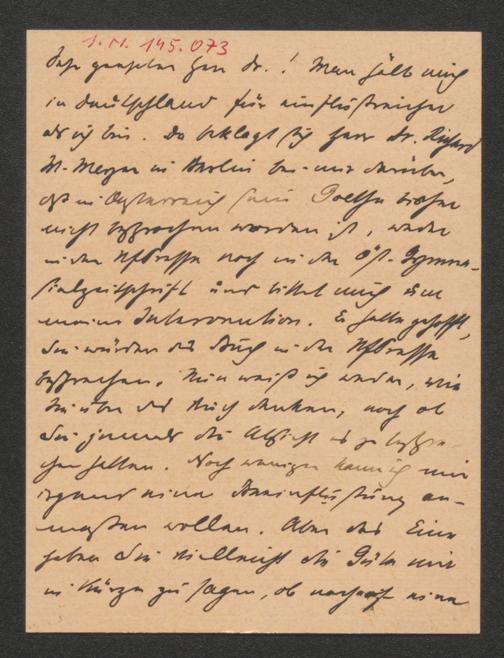 I.N. 145.073
Sehr geehrter Herr Dr.! Man hält mich
in Deutschland für einflußreicher
als ich bin. Da beklagt sich Herr Dr. Richard
M. Meyer in Berlin bei mir darüber,
daß in Österreich sein Goethe bisher
nicht besprochen worden ist, weder
in der NfPresse noch in der Öst. Gymna-
sialzeitschrift und bittet mich um
meine Intervention. Er habe gehofft,
Sie würden das Buch in der NfPresse
besprechen. Nun weiß ich weder, wie
Sie über das Buch denken, noch ob
Sie jemals die Absicht es zu bespre-
chen hatten. Noch weniger kann ich mir
irgend eine Beeinflußung an-
maßen wollen. Aber das Eine
haben Sie vielleicht die Güte mir
in Kürze zu sagen, ob noch auf eine